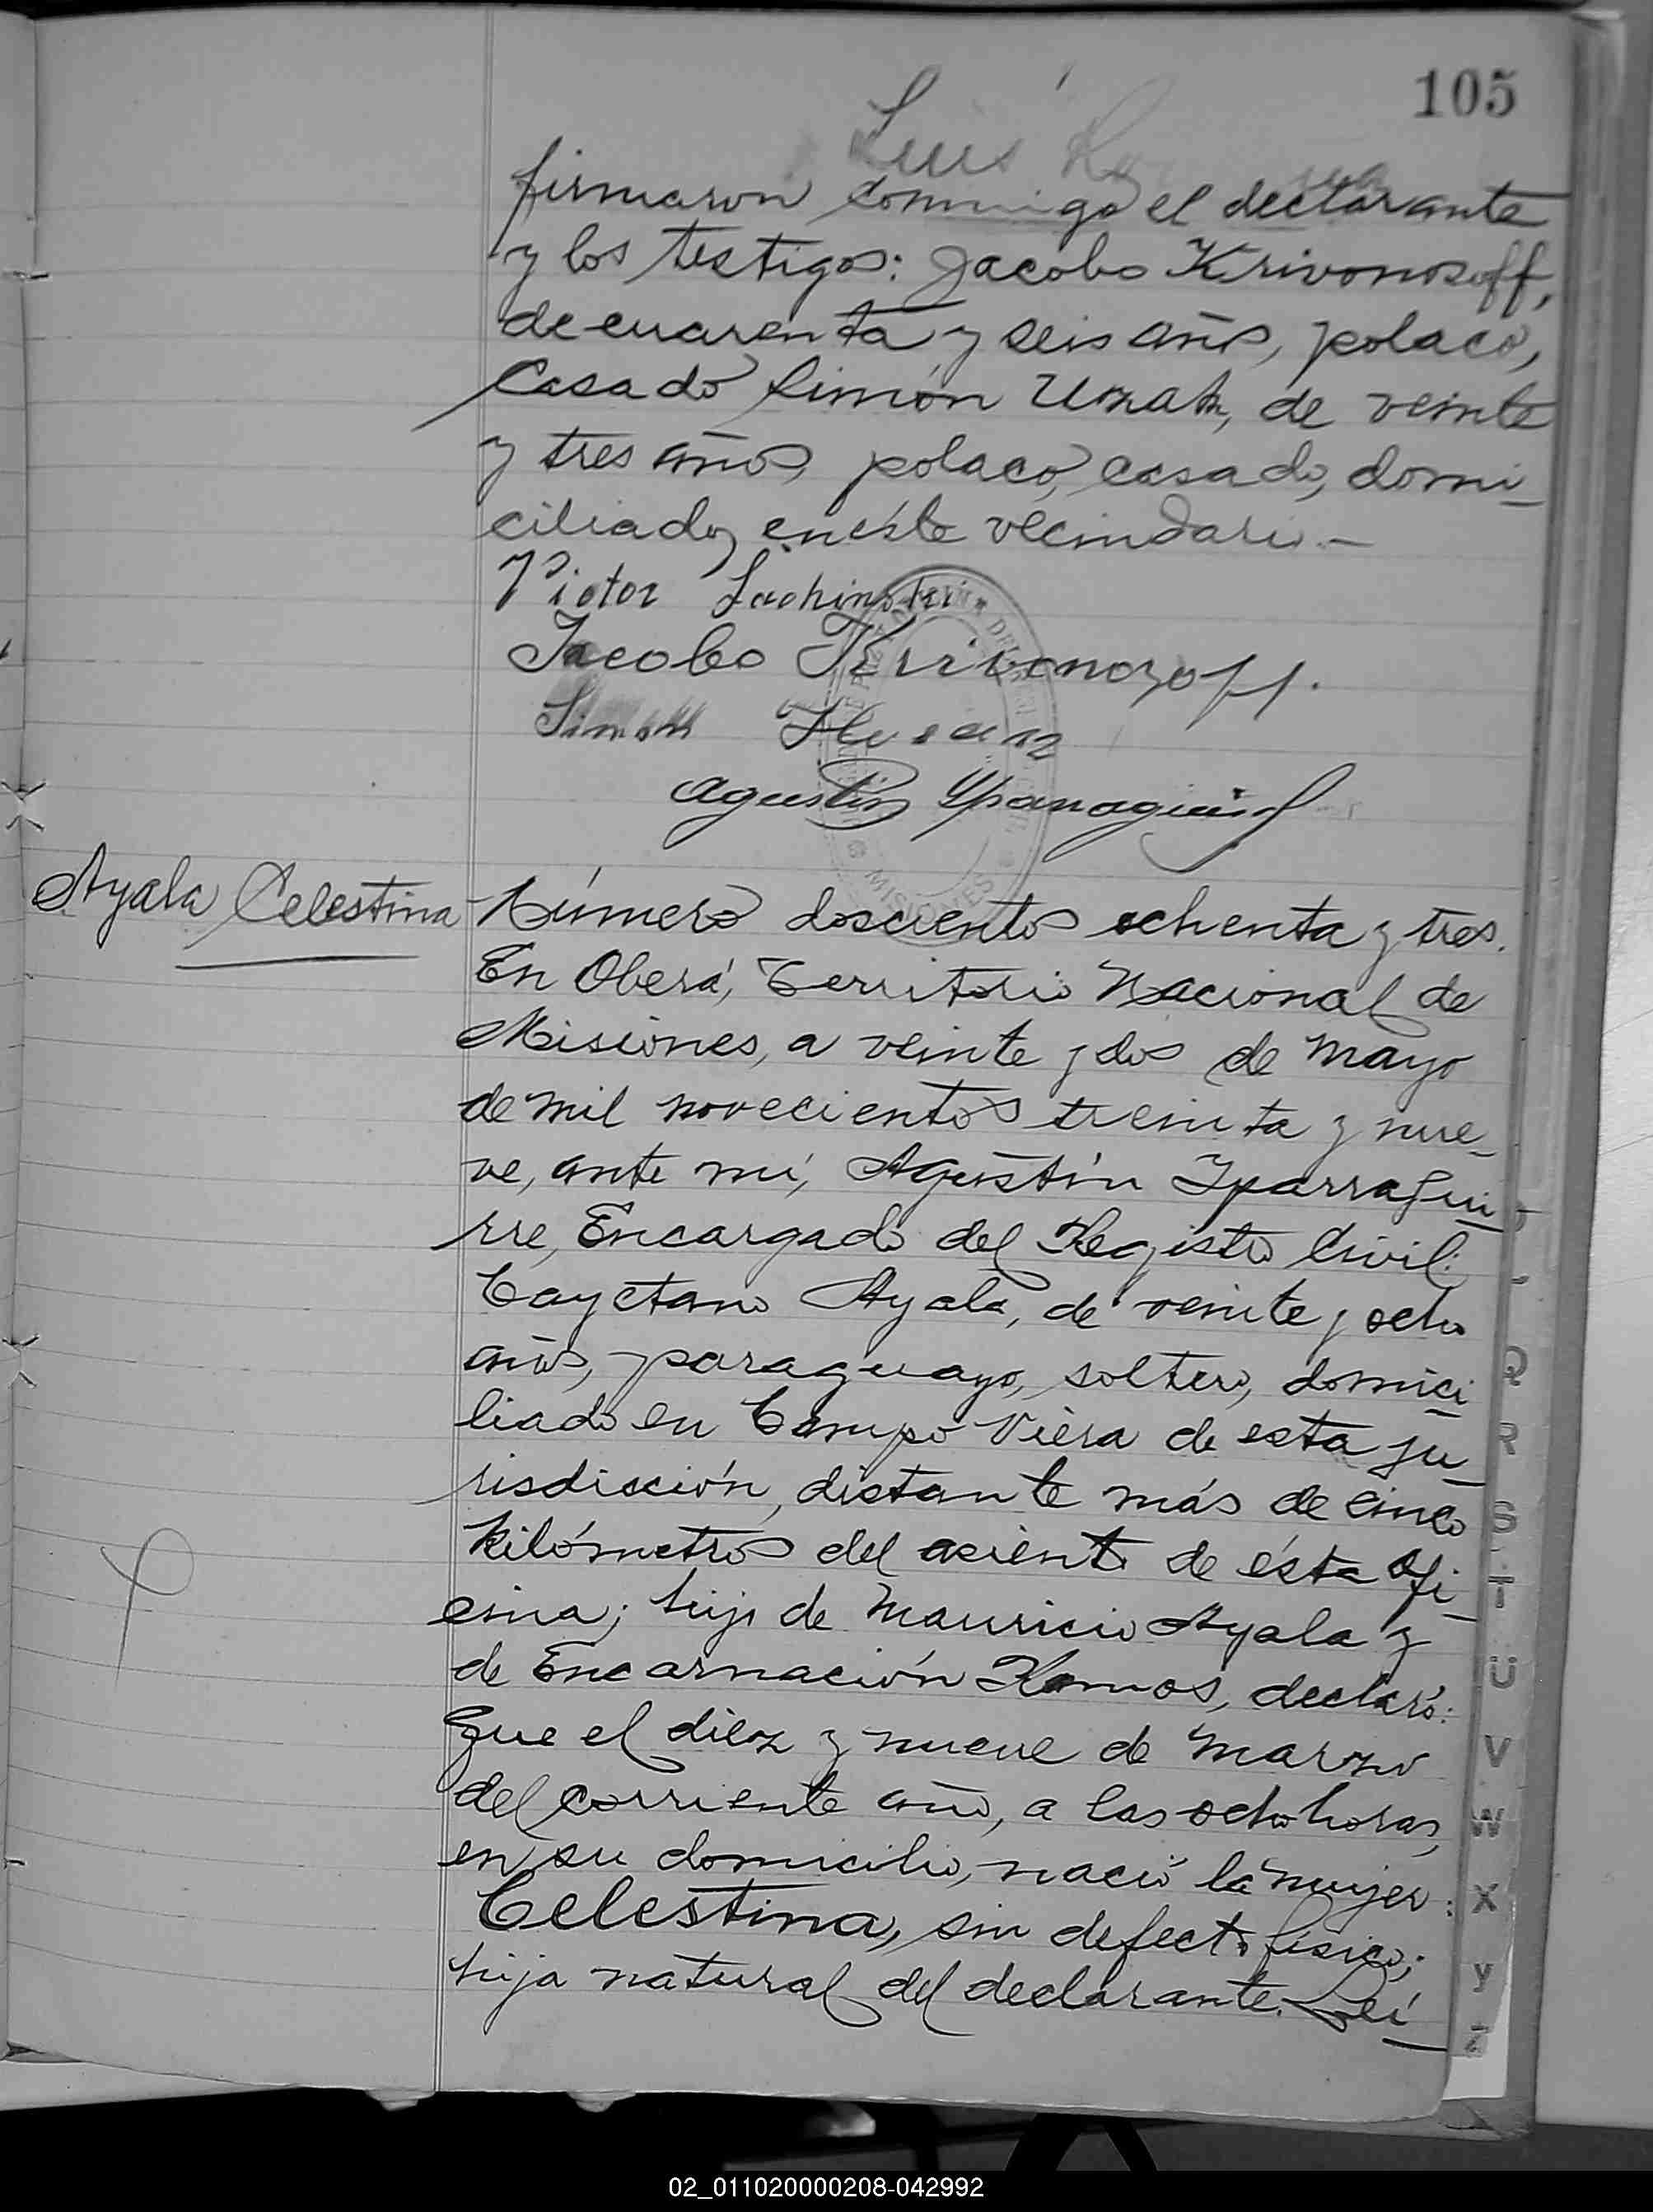 105
Luis
firmaron conmigo el declarante
y los testigos: Jacobo Krivonosoff,
de cuarenta y seis años, polaco,
casado Simón Uznah, de veinte
y tres años, polaco, casado, domi-
ciliados en éste vecindario.-
Victor Lachinski
Jacobo Krivonozoff.
Simon
Agustín Yparraguirre
MISIONES
Ayala Celestina
Número doscientos ochenta y tres.
En Oberá, Territorio Nacional de
Misiones, a veinte y dos de Mayo
de mil novecientos treinta y nue-
ve, ante mí, Agustín Yparragui-
rre, Encargado del Registro Civil:
Cayetano Ayala, de veinte y ocho
años, paraguayo, soltero, domici-
liado en Campo Viera de esta ju-
risdicción, distante más de cinco
kilómetros del asiento de ésta Ofi-
cina; hijo de Mauricio Ayala y
de Encarnación Ramos, declaró:
Que el diez y nueve de Marzo
del corriente año, a las ocho horas,
en su domicilio, nació la mujer:
Celestina, sin defecto físico;
hija natural del declarante. Leí-
Q
R
S
T
U
V
W
X
y
z
02_011020000208-042992